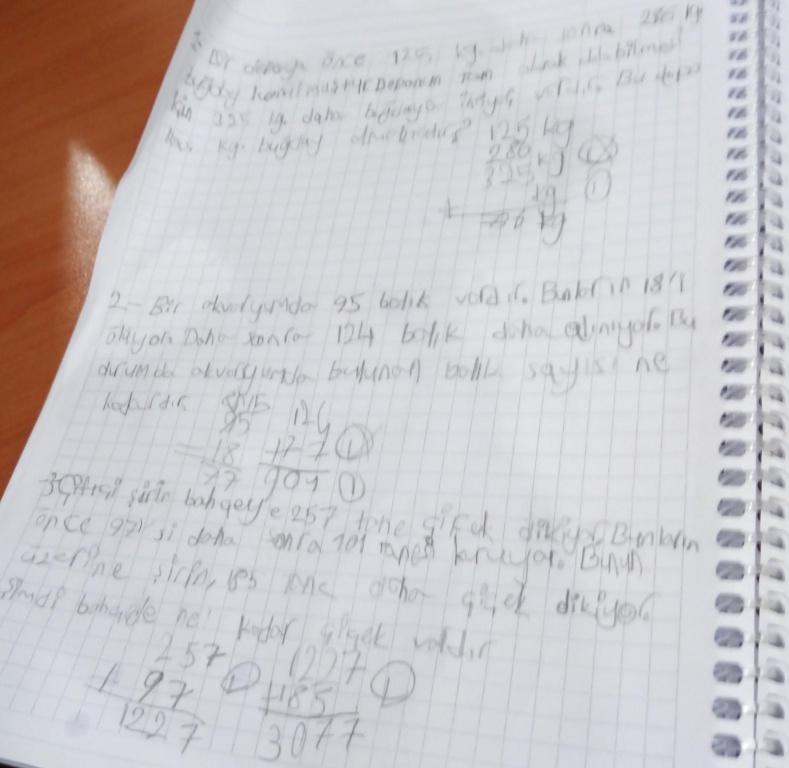 Bir depoya önce 125 kg. daha sonra 286 kg
buğday konulmuştur. Deponun tam olarak dolabilmesi
için 325 kg. daha buğdaya ihtiyaç vardır. Bu depo
kg. buğday
125 kg
286 kg
325 kg
kg
+
kg
2- Bir akvaryumda 95 balık vardır. Bunların 18'i
ölüyor. Daha sonra 124 balık daha alınıyor. Bu
durumda akvaryumda bulunan balık sayısı ne
kadardır
95 124
- 18 +77 1
77 901 1
3 Çiftçi şirin bahçeye 257 tane çiçek dikiyor. Bunların
önce 97'si daha sonra 101 tanesi kuruyor. Bunun
üzerine şirin, 185 tane daha çiçek dikiyor.
şimdi bahçede ne kadar çiçek valdır
257 1227
+ 97 +185 1
1227 3077